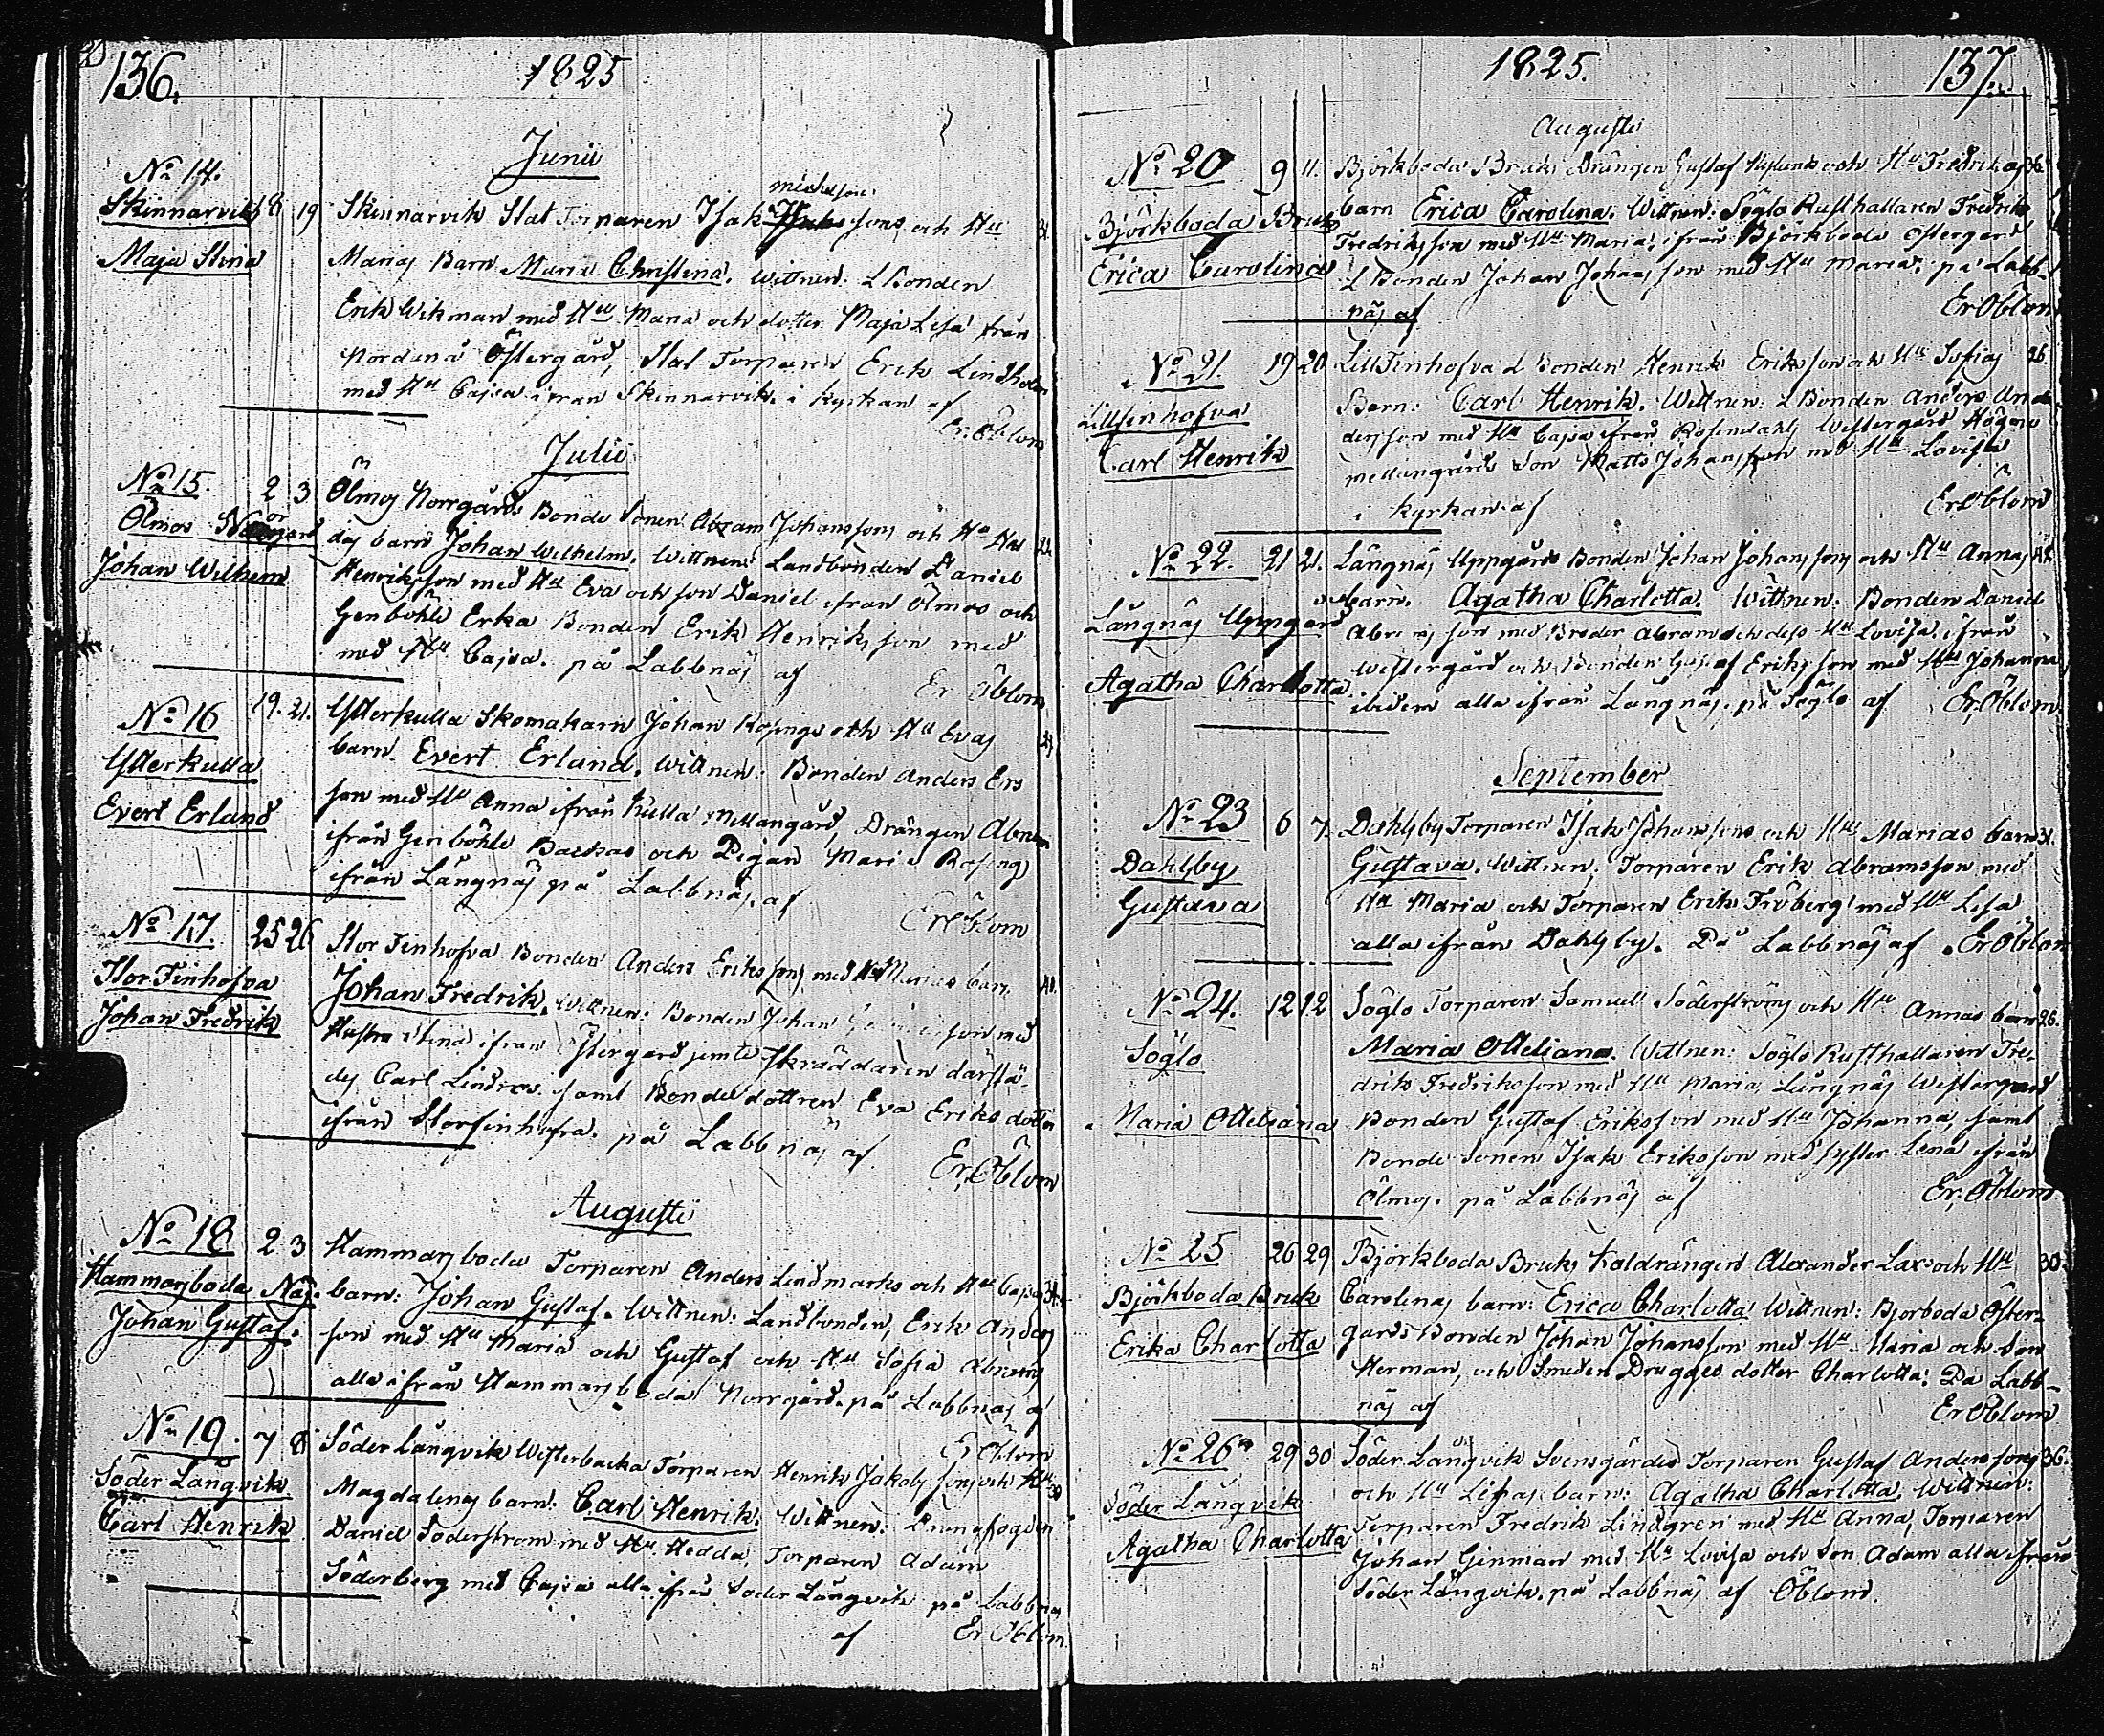 136.
1825
Junii
No 14.
Skinnarvik 18 19 Skinnarvik Stat Torparen Isak michelsons och Hu 31.
Maja Stina
Marias Barn Maria Christina. Wittnen. L Bonden
Erik Wikman med Hu Maria och dotter Maja Lisa från
Nordanå Östergård, Stat Torparen Erik Lindholm
med Hu Cajsa ifrån Skinnarvik. i kyrkan af
Er. Öblom
Julii
No 15 2 3 Ölmos Norrgårds Bonde Sonen Abram Johanssons och Hu
Ölmos Norrgård
Johan Wilhem
das barn Johan Wilhelm. Wittnen Landbonden Daniel
Henriksson med Hu Eva och son Daniel ifrån Ölmos och
Genböhle Erka Bonden Erik Henriksson med
med Hu Cajsa. på Labbnäs af
Er Öblom
No 16 19. 21. Ytterkulla Skomakarn Johan Rosings och Hu Evas
Ytterkulla
Evert Erland
barn. Evert Erland. Wittnen: Bonden Anders Ers
son med Hu Anna ifrån Kulla Mellangård, Drängen Abram
ifrån Genböhle Backas och Pigan Maria Rosing
ifrån Långnäs på Labbnäs. af
Er Öblom
No 17. 25 26 Stor Finhofva Bonden Anders Erikssons med Hu Marias barn
Stor Finhofva
Johan Fredrik
Johan Fredrik. Wittnen: Bonden Johan son med
Hustru Stina ifrån Östergård jemte Skräddaren därstä-
des Carl Lindros. samt Bonde dottren Eva Eriks dotter
ifrån Storfinhofva. på Labbnäs af
Er, Öblom
Augusti
No 18 2 3 Hammarsboda Torparen Anders Lindmarks och Hu Cajsas 34.
Hammarsboda Näs.
Johan Gustaf.
barn: Johan Gustaf. Wittnen: Landbonden, Erik Anders
son med Hu Maria och Gustaf och Hu Sofia
alla ifrån Hammarsboda Norrgård. på Labbnäs af
Er Öblom
No 19. 7 8 Söder Långvik Westerbacka Torparen Henrik Jakobssons och Hu 30
Söder Långvik
Carl Henrik
Magdalenas barn: Carl Henrik. Wittnen:
Daniel Söderström med Hu. Hedda, Torparen Adam
Söderberg med Cajsa alla ifrån Söder Långvik på Labbnäs
af Er Öblom
1825.
137.
Augusti
No 20 9 11. Björkboda Bruks Drängen Gustaf Nylunds och Hu Fredrikas 36.
Björkboda Bruk
Erica Carolina
barn Erica Carolina. Wittnen: Söglo Rusthållaren Fredrik
Fredriksson med Hu Maria, ifrån Björkboda Östergård
L Bonden Johan Johansson med Hu Maria. på Labb-
näs af
Er Öblom
No 21. 19 20 LillFinhofva L Bonden Henrik Eriksson och Hu Sofias 26
Lillfinhofva
Carl Henrik
Barn: Carl Henrik. Wittnen: L Bonden Anders An-
dersson med Hu Cajsa ifrån Rosendahls Westergård Högmo
mellangårds Son Matts Johansson med Hu Lovisa
i kyrkan. af
Er. Öblom
No 22. 21 21. Långnäs Uppgårds Bonden Johan Johanssons och Hu Annas
Långnäs Uppgård
Agatha Charlotta
barn. Agatha Charlotta. Wittnen: Bonden Daniel
Abramsson med Broder Abram och dess Hu Lovisa. ifrån
Westergård och Bonden Gustaf Eriksson med Hu Johanna
ibidem alla ifrån Långnäs. på Söglo af Er, Öblom
September
No 23 6 7. Dahlsby Torparen Isak Johanssons och Hus Marias barn 31.
Dahlsby
Gustava
Gustava. Wittnen. Torparen Erik Abramsson med
Hu Maria och Torparen Erik Fröberg med Hu Lisa
alla ifrån Dahlsby. På Labbnäs af. Er Öblom
No 24. 12 12 Söglo Torparen Samuel Söderströms och Hu Annas barn 26.
Söglo
Maria Otteliana
Maria Otteliana. Wittnen: Söglo Rusthållaren Fre-
drik Fredriksson med Hu Maria, Långnäs Westergård
Bonden Gustaf Eriksson med Hu Johanna, samt
Bonde Sonen Isak Eriksson med syster Lena ifrån
Ölmos. på Labbnäs af
Er. Öblom
No 25 26 29 Björkboda Bruks Koldrängen Alexander Lax och Hu 30.
Björkboda Bruk
Erika Charlotta
Carolinas barn: Erica Charlotta Wittnen: Bjorboda Öster-
gårds Bonden Johan Johansson med Hu Maria och Son
Herman, och Smeden Dragges dotter Charlotta: På Labb-
näs af
Er Öblom
No 26 29 30 Söder Långvik Svensgårds Torparen Gustaf Anderssons 36.
Söder Långvik
Agatha Charlotta
och Hu Lisas barn: Agatha Charlotta, Wittnen:
Torparen Fredrik Lindgren med Hu Anna, Torparen
Johan Ginman med Hu Lovisa och Son Adam alla ifrån
Söder Långvik. på Labbnäs af Öblom.